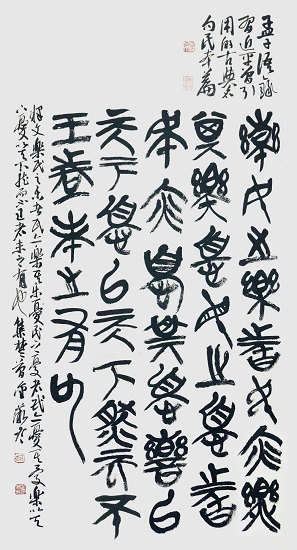 孟子語錄
習近平曾引
用的古典名
句民本篇
樂民之樂者民亦樂
其樂憂民之憂者
民亦憂其憂樂以
天下憂以天下然而不
王者未之有也
釋文樂民之樂者民亦樂其樂憂民之憂者民亦憂其憂樂以天
下憂以天下然而不王者未之有也集楚簡